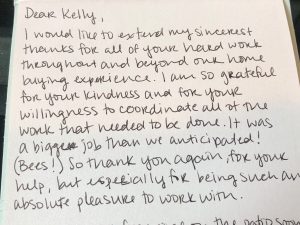 Dear Kelly,
I would like to extend my sincerest
thanks for all of your hard work
throughout and beyond our home
buying experience. I am so grateful
for your kindness and for your
willingness to coordinate all of the
work that needed to be done. It was
a bigger job than we anticipated!
(Bees!) So thank you again, for your
help, but especially for being such an
absolute pleasure to work with.
on the patio